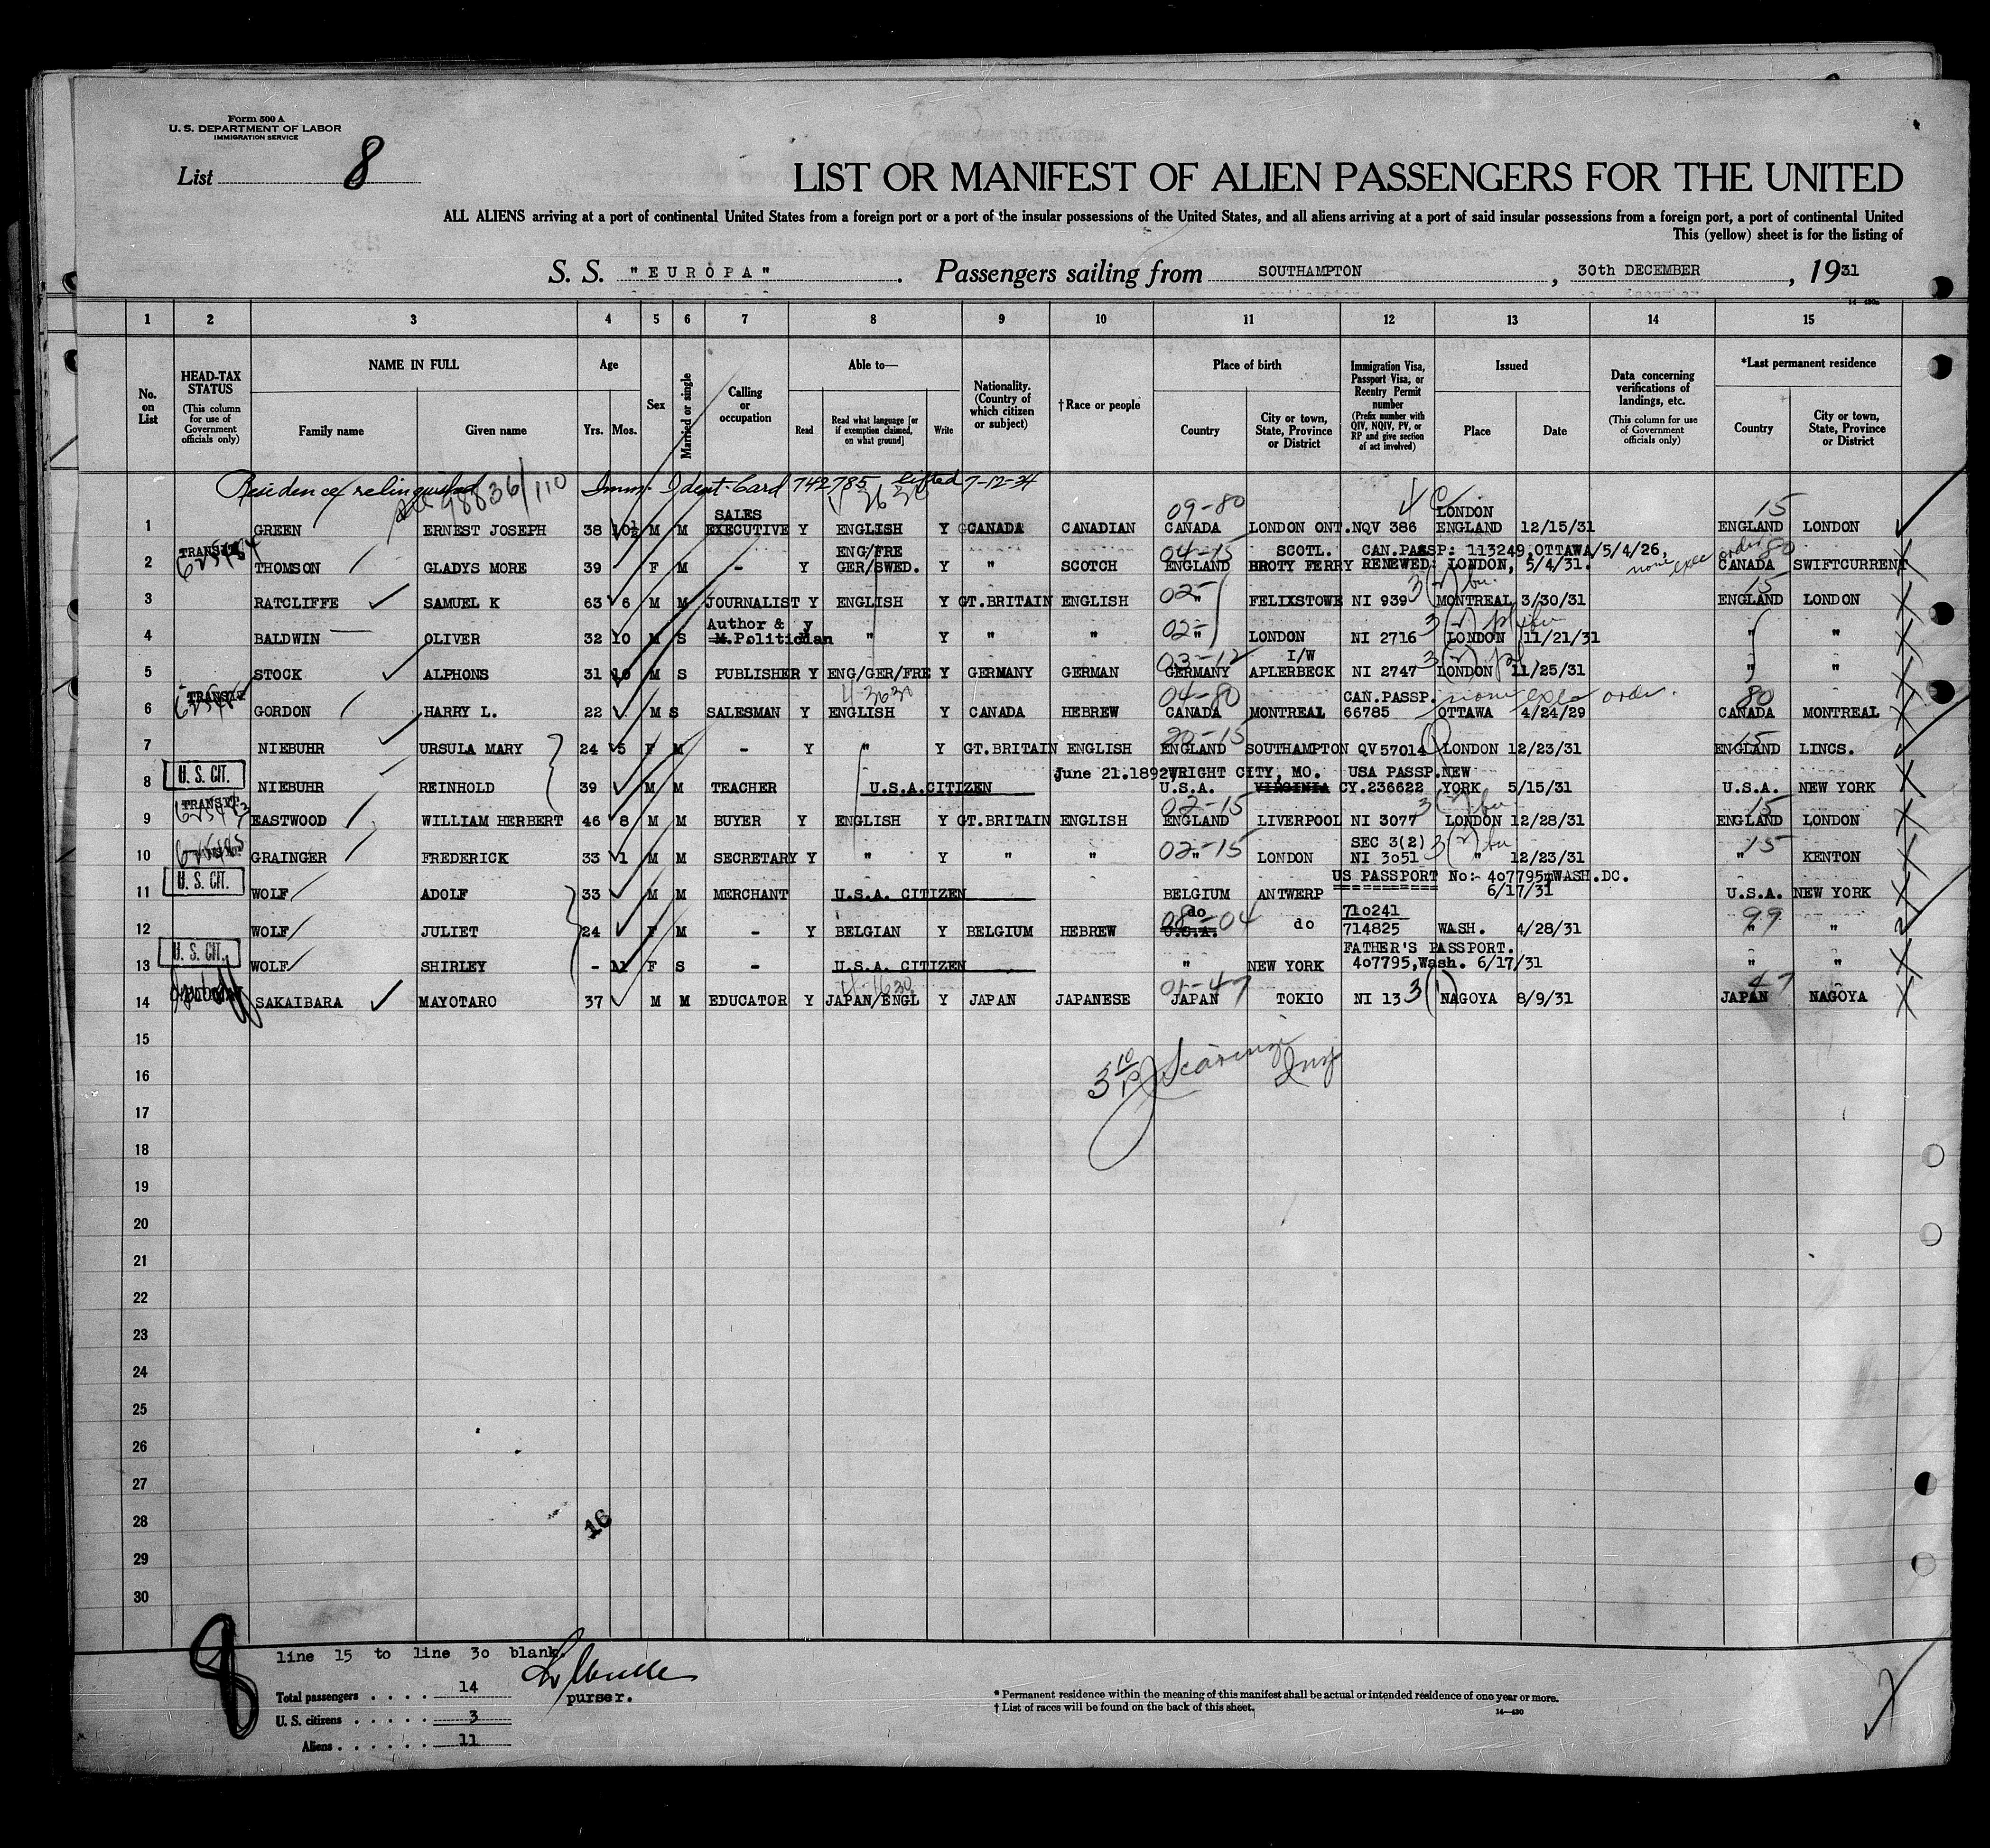 Form 500 A
U. S. DEPARTMENT OF LABOR
IMMIGRATION SERVICE
List 8
LIST OR MANIFEST OF ALIEN PASSENGERS FOR THE UNITED
ALL ALIENS arriving at a port of continental United States from a foreign port or a port of the insular possessions of the United States, and all aliens arriving at a port of said insular possessions from a foreign port, a port of continental United
This (yellow) sheet is for the listing of
S. S. "EUROPA" . Passengers sailing from SOUTHAMPTON , 30th DECEMBER , 1931
1 2 3 4 5 6 7 8 9 10 11 12 13 14 15
No. on List
HEAD-TAX STATUS (This column for use of Government officials only)
NAME IN FULL
Family name Given name
Age
Yrs. Mos.
Sex
Married or single
Calling or occupation
Able to—
Read Read what language [or if exemption claimed, on what ground] Write
Nationality. (Country of which citizen or subject)
†Race or people
Place of birth
Country City or town, State, Province or District
Immigration Visa, Passport Visa, or Reentry Permit number (Prefix number with QIV, NQIV, PV, or RP and give section of act involved)
Issued
Place Date
Data concerning verifications of landings, etc. (This column for use of Government officials only)
*Last permanent residence
Country City or town, State, Province or District
Residence relinquished Imm. Ident Card 742785 lifted 7-12-34
98836/110
1 GREEN ERNEST JOSEPH 38 10½ M M SALES EXECUTIVE Y ENGLISH Y CANADA CANADIAN 09-80 CANADA LONDON ONT. NQV 386 LONDON ENGLAND 12/15/31 15 ENGLAND LONDON
2 TRANSIT THOMSON GLADYS MORE 39 F M - Y ENG/FRE GER/SWED. Y " SCOTCH 04-15 ENGLAND SCOTL. BROTY FERRY CAN.PASSP: 113249,OTTAWA/5/4/26, RENEWED: LONDON, 5/4/31. none exec order 80 CANADA SWIFTCURRENT
3 RATCLIFFE SAMUEL K 63 6 M M JOURNALIST Y ENGLISH Y GT.BRITAIN ENGLISH 02- " FELIXSTOWE NI 939 3(2) MONTREAL 3/30/31 15 ENGLAND LONDON
4 BALDWIN OLIVER 32 10 M S Author & M.Politician y " Y " " 02- " LONDON NI 2716 3(2) LONDON 11/21/31 " "
5 STOCK ALPHONS 31 10 M S PUBLISHER Y ENG/GER/FRE Y GERMANY GERMAN 03-12 GERMANY I/W APLERBECK NI 2747 3(2) LONDON 11/25/31 " "
6 TRANSIT GORDON HARRY L. 22 M S SALESMAN Y ENGLISH Y CANADA HEBREW 04-80 CANADA MONTREAL CAN.PASSP. 66785 OTTAWA 4/24/29 none exec order. 80 CANADA MONTREAL
7 NIEBUHR URSULA MARY 24 5 F M - Y " Y GT.BRITAIN ENGLISH 20-15 ENGLAND SOUTHAMPTON QV57014 LONDON 12/23/31 15 ENGLAND LINCS.
8 U. S. CIT. NIEBUHR REINHOLD 39 M M TEACHER U.S.A.CITIZEN June 21.1892, WRIGHT CITY, MO. U.S.A. VIRGINIA USA PASSP. CY.236622 NEW YORK 5/15/31 U.S.A. NEW YORK
9 TRANSIT EASTWOOD WILLIAM HERBERT 46 8 M M BUYER Y ENGLISH Y GT.BRITAIN ENGLISH 02-15 ENGLAND LIVERPOOL NI 3077 3(2) LONDON 12/28/31 15 ENGLAND LONDON
10 GRAINGER FREDERICK 33 1 M M SECRETARY Y " Y " " 02-15 " LONDON SEC 3(2) NI 3051 3(2) " 12/23/31 15 " KENTON
11 U. S. CIT. WOLF ADOLF 33 M M MERCHANT U.S.A. CITIZEN BELGIUM ANTWERP US PASSPORT No:- 407795 WASH.DC. 6/17/31 U.S.A. NEW YORK
12 WOLF JULIET 24 F M - Y BELGIAN Y BELGIUM HEBREW do 08-04 U.S.A. do 710241 714825 WASH. 4/28/31 99 " "
13 U. S. CIT. WOLF SHIRLEY - 11 F S - U.S.A. CITIZEN " NEW YORK FATHER'S PASSPORT. 407795,Wash. 6/17/31 " "
14 SAKAIBARA MAYOTARO 37 M M EDUCATOR Y JAPAN/ENGL Y JAPAN JAPANESE 01-47 JAPAN TOKIO NI 13 3(1) NAGOYA 8/9/31 47 JAPAN NAGOYA
15
16
17
18
19
20
21
22
23
24
25
26
27
28
29
30
16
8
line 15 to line 30 blank.
purser.
Total passengers . . . . 14
U. S. citizens . . . . . 3
Aliens . . . . . . 11
* Permanent residence within the meaning of this manifest shall be actual or intended residence of one year or more.
† List of races will be found on the back of this sheet.
14—430